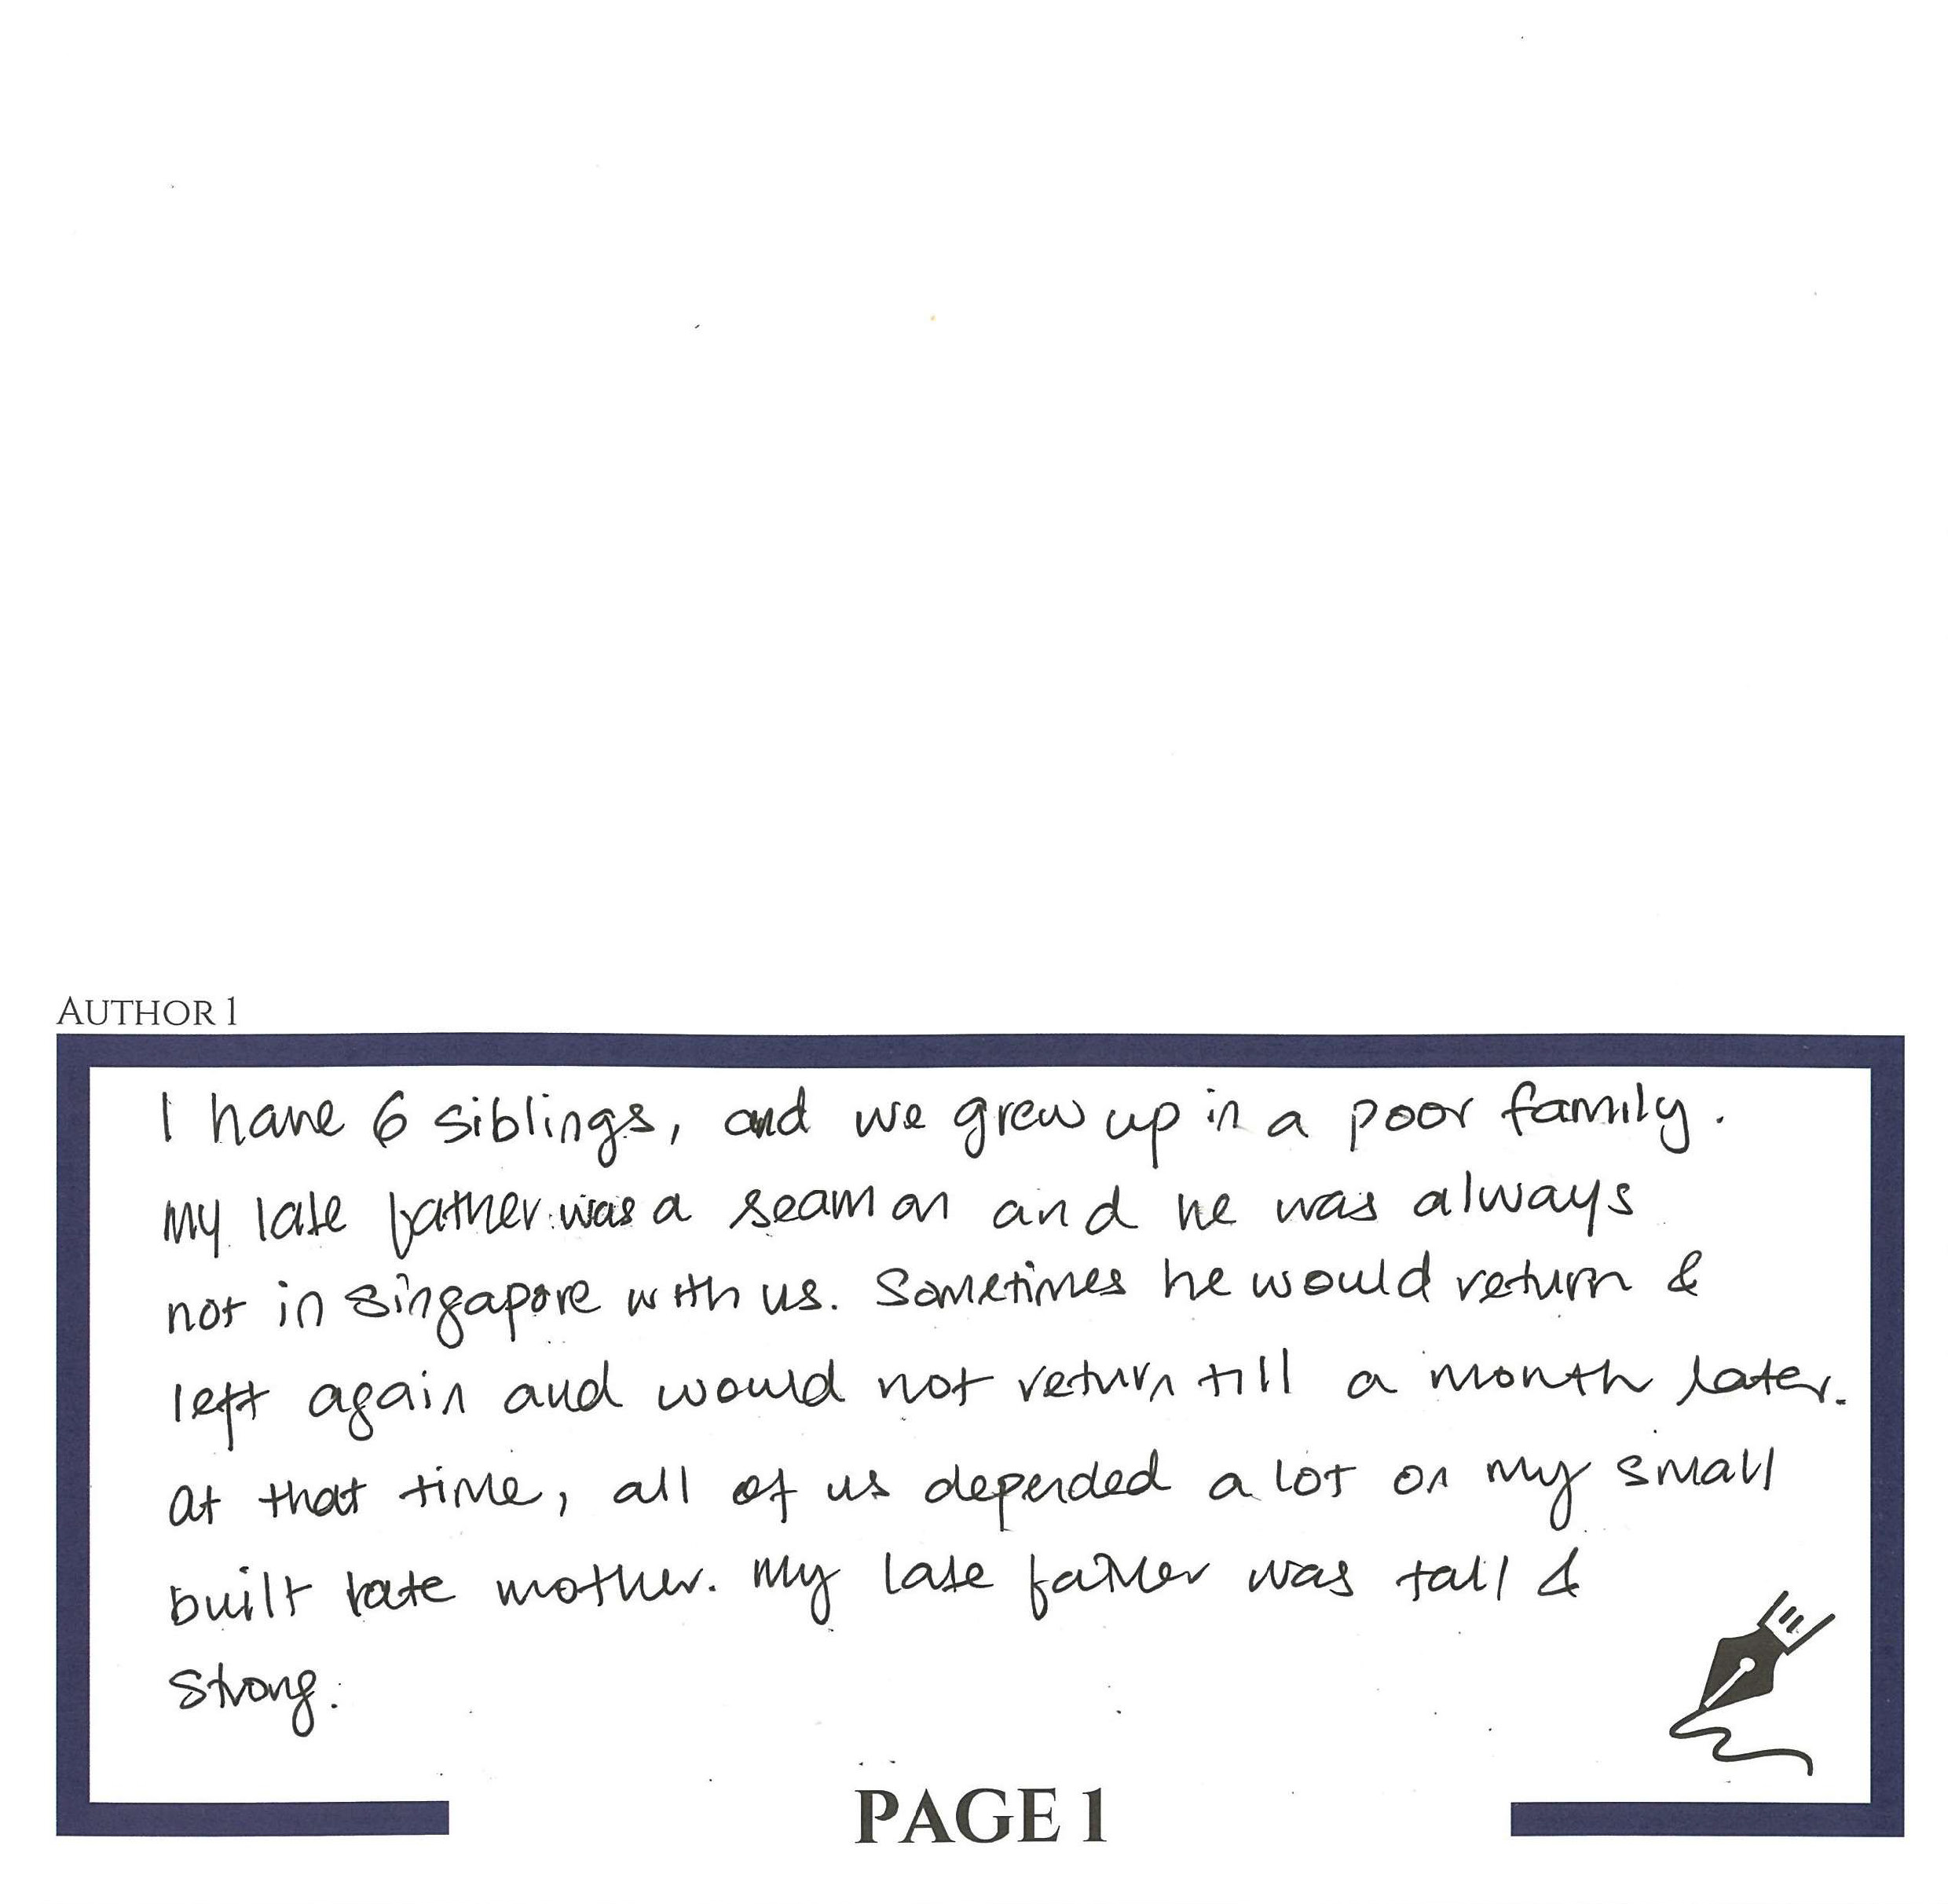 AUTHOR 1
I have 6 siblings, and we grew up in a poor family.
My late father was a seaman and he was always
not in Singapore with us. Sometimes he would return &
left again and would not return till a month later.
At that time, all of us depended a lot on my small
built late mother. My late father was tall &
strong.
PAGE 1